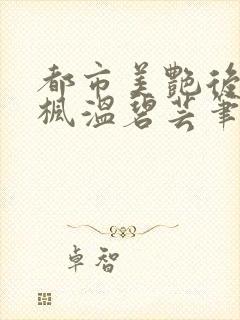 都市美艷後
楓溫碧芸筆
卓智